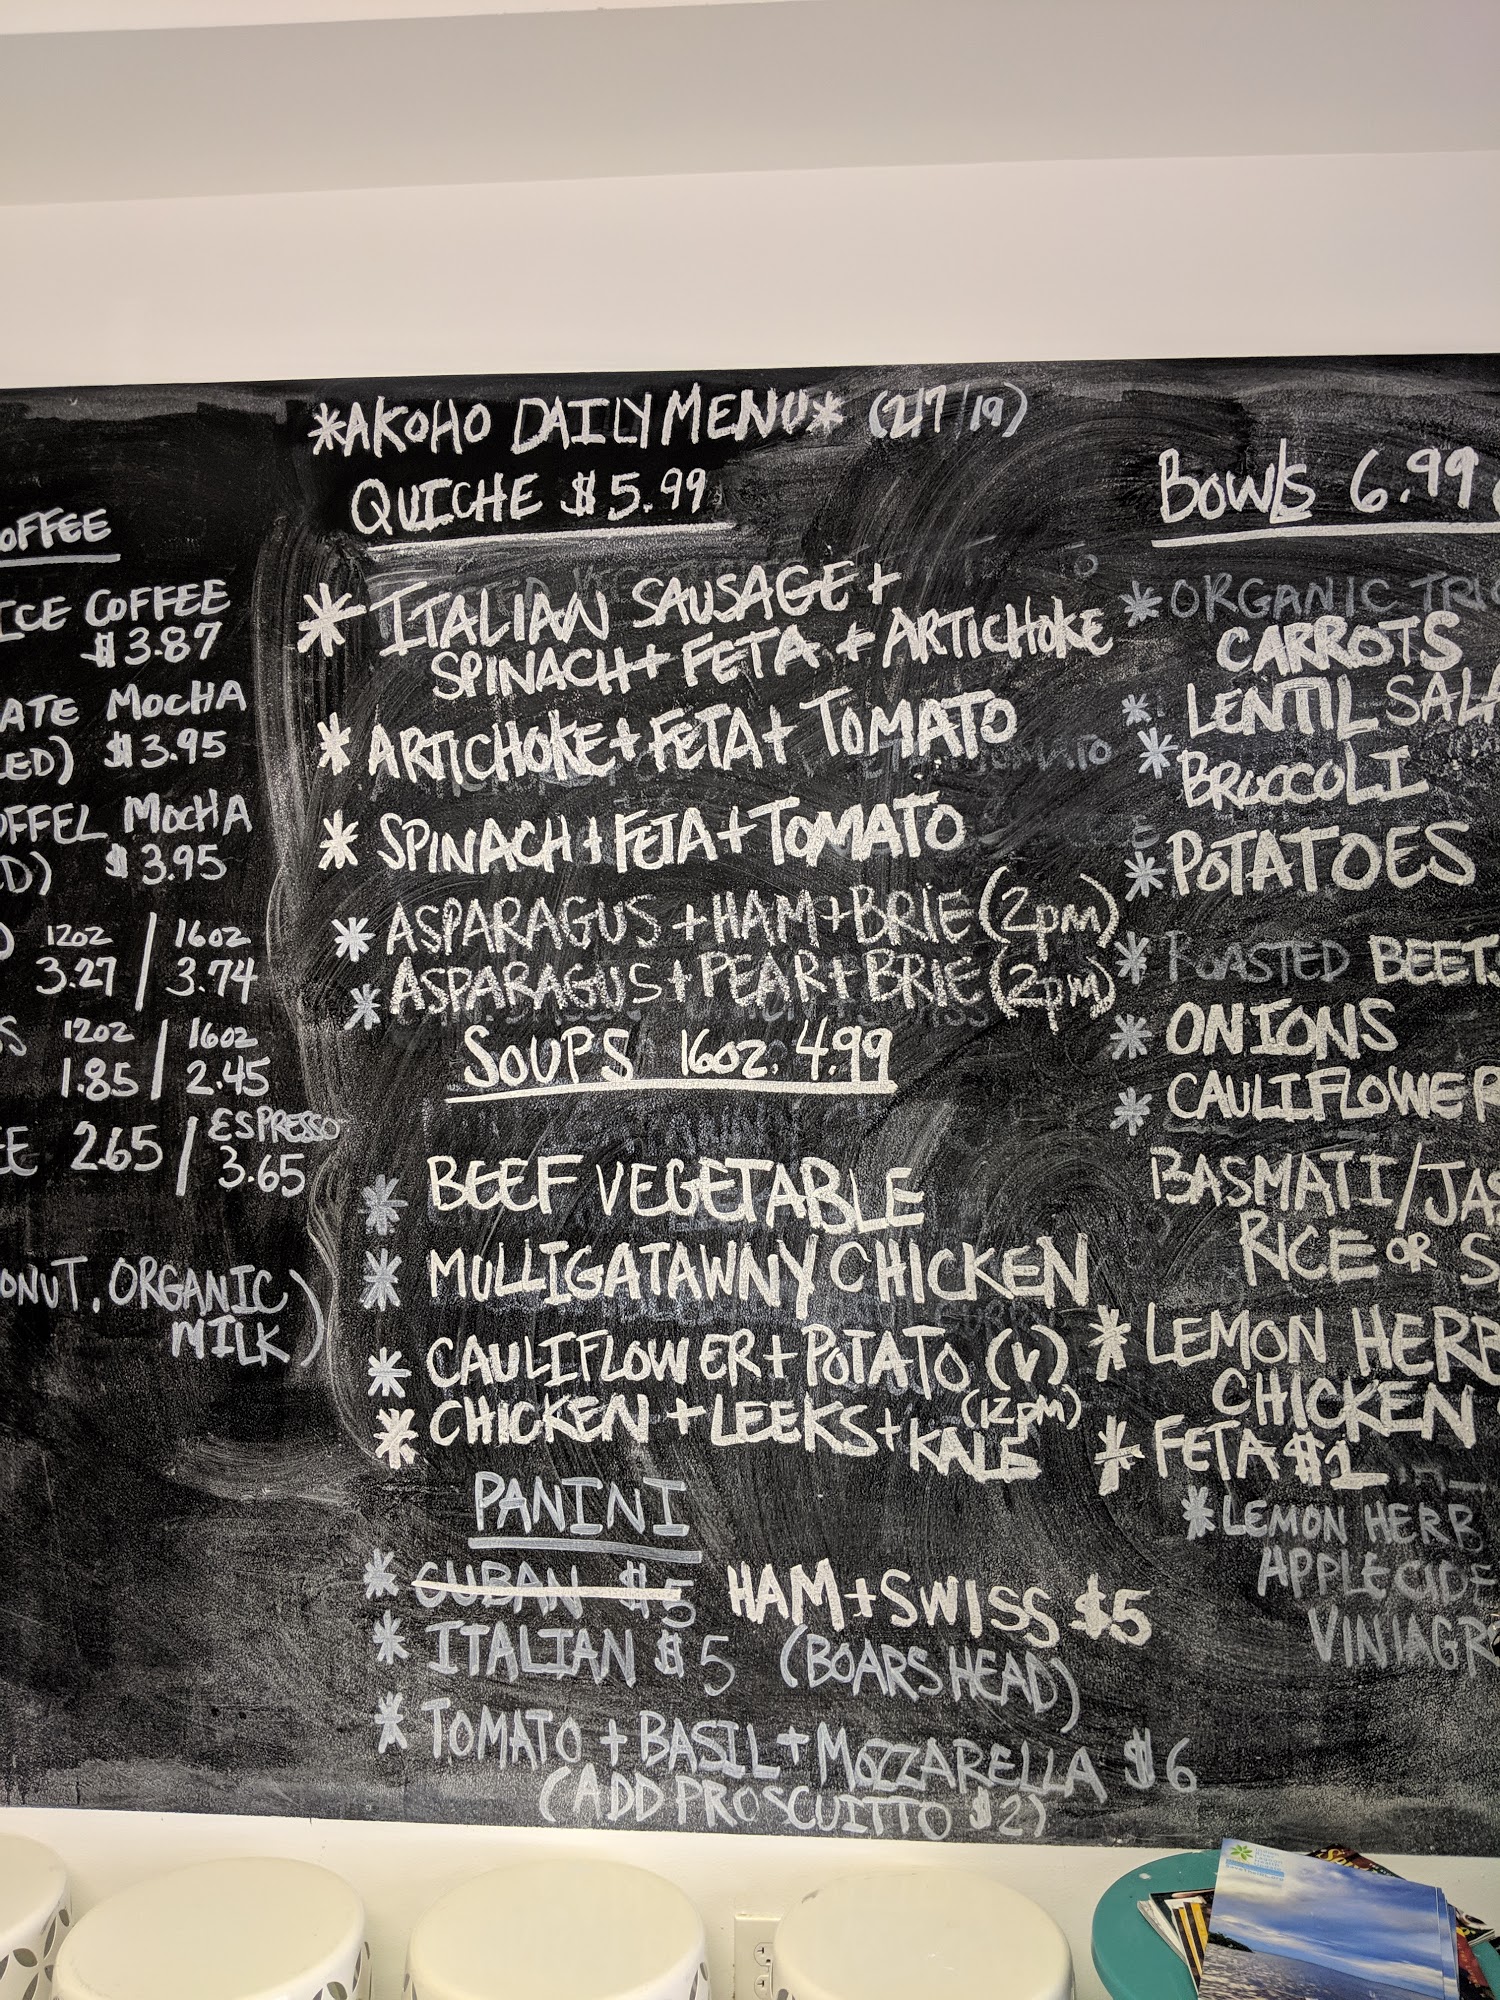 *AKOHO DAILY MENU* (2/7/19)
QUICHE $5.99
* ITALIAN SAUSAGE +
SPINACH + FETA + ARTICHOKE
* ARTICHOKE + FETA + TOMATO
* SPINACH + FETA + TOMATO
* ASPARAGUS + HAM + BRIE (2pm)
* ASPARAGUS + PEAR + BRIE (2pm)
SOUPS 16oz. 4.99
* BEEF VEGETABLE
* MULLIGATAWNY CHICKEN
* CAULIFLOWER + POTATO (V)
* CHICKEN + LEEKS + KALE (12pm)
PANINI
* CUBAN $5 HAM + SWISS $5
* ITALIAN $5 (BOARS HEAD)
* TOMATO + BASIL + MOZZARELLA $6
(ADD PROSCUITTO $2)
OFFEE
ICE COFFEE
$3.87
ATE MOCHA
LED) $3.95
OFFEL MOCHA
D) $3.95
O 12oz / 16oz
3.27 / 3.74
S 12oz / 16oz
1.85 / 2.45
EE 2.65 / ESPRESSO
3.65
ONUT, ORGANIC
MILK)
BOWLS 6.99
* ORGANIC TRIC
CARROTS
* LENTIL SALA
* BROCCOLI
* POTATOES
* ROASTED BEETS
* ONIONS
* CAULIFLOWER
BASMATI/JAS
RICE OR S
* LEMON HERB
CHICKEN
* FETA $1
* LEMON HERB
APPLE CIDE
VINIAGR